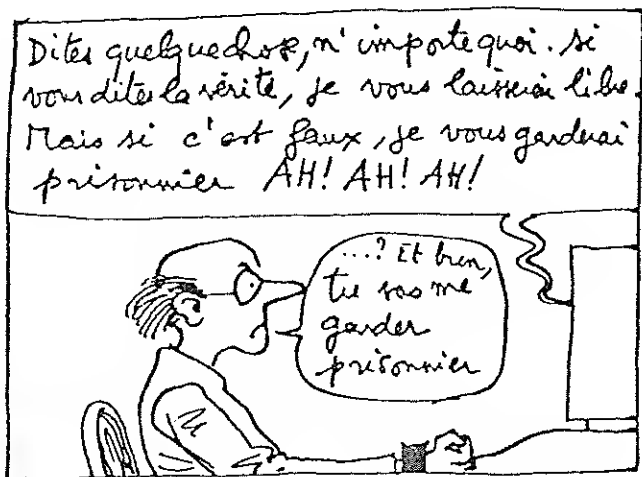 Dites quelquechose, n'importe quoi. si
vous dites la vérité, je vous laisserai libre.
Mais si c'est faux, je vous garderai
prisonnier AH! AH! AH!
...? Et bien,
tu vas me
garder
prisonnier